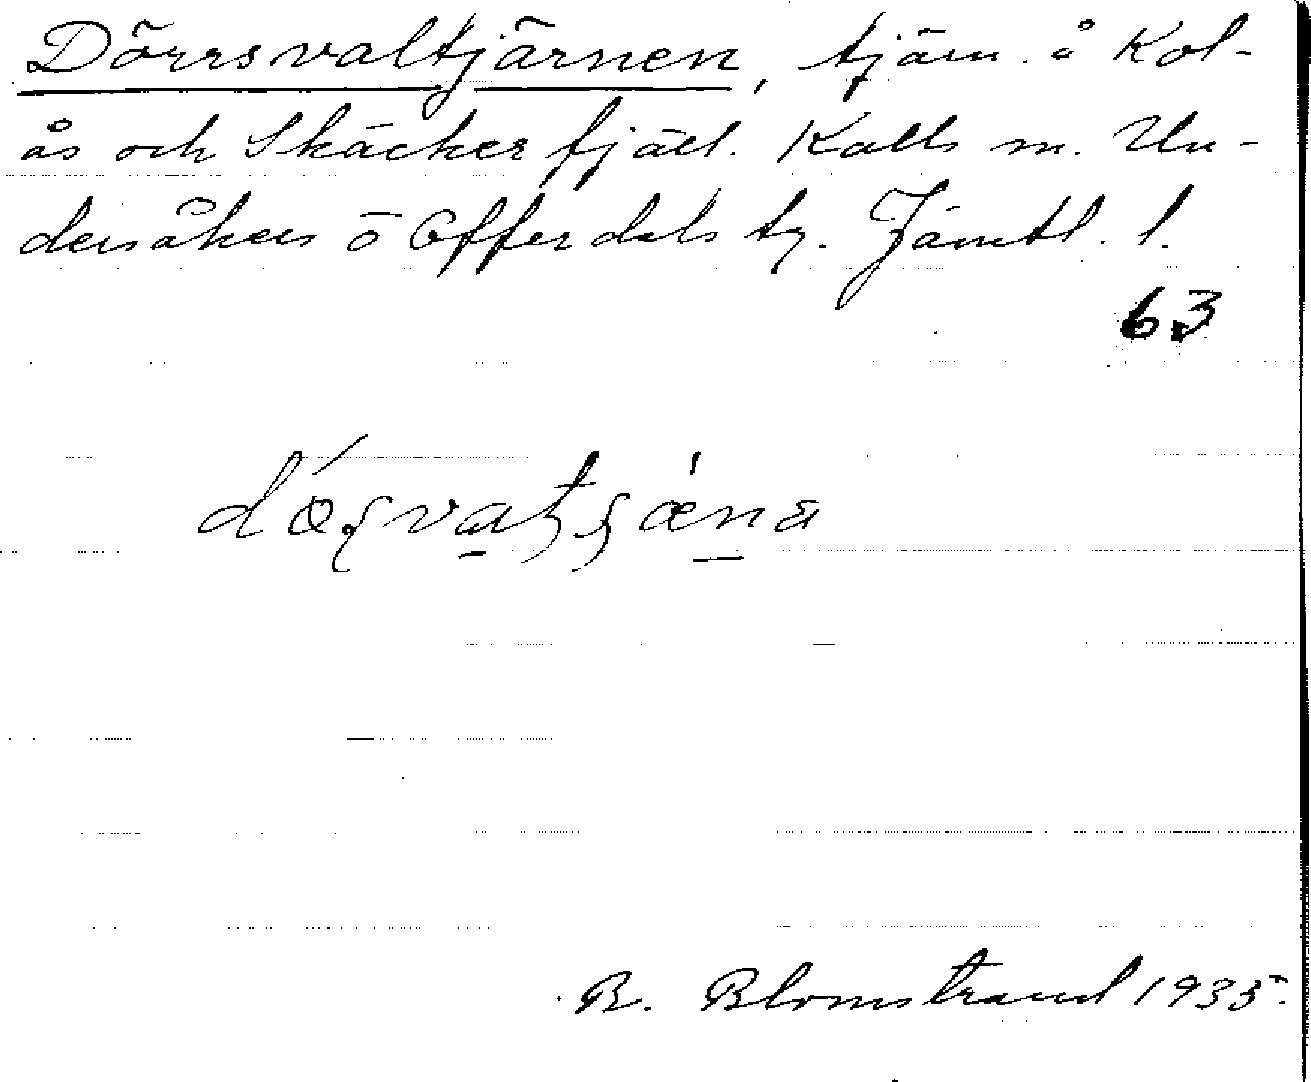 Dörrsvaltjärnen, tjärn å Kol-
ås och Skäckerfjäll. Kalls sn. Un-
dersåkers o Offerdals tg. Jämtl. l.
63
B. Blomstrand 1935.